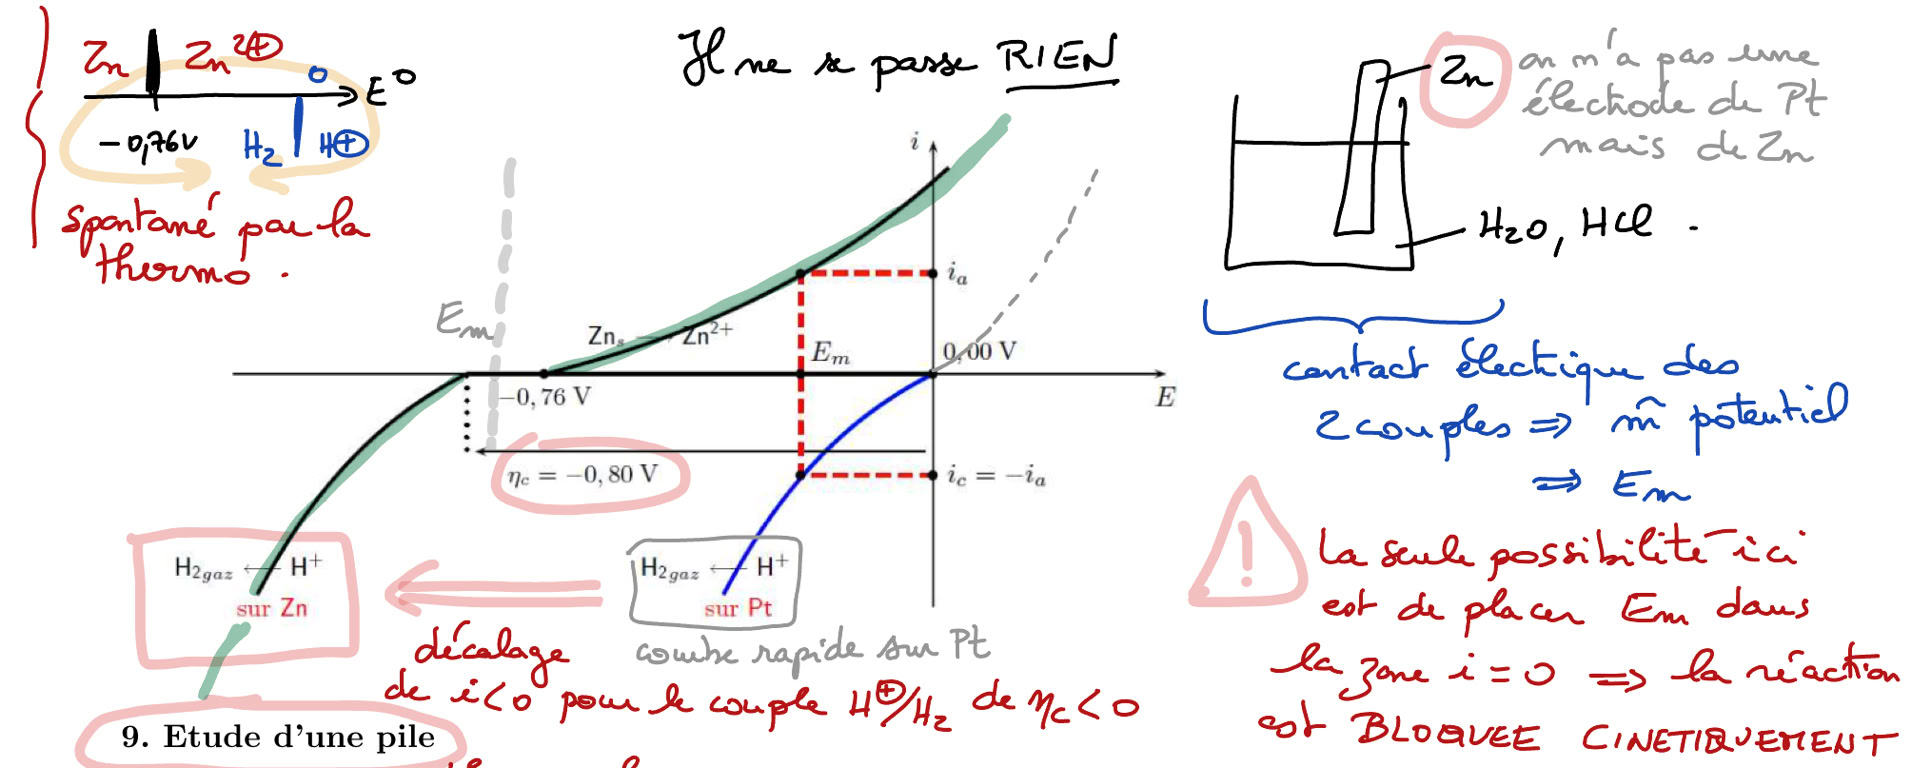 Zn Zn²⊕
0
E°
-0,76V H₂ H⊕
spontané par la
thermo.
Il ne se passe RIEN
i
i_a
E_m
Zn_s → Zn²⁺
E_m
0,00 V
−0,76 V
E
η_c = −0,80 V
i_c = −i_a
H₂gaz ← H⁺
sur Zn
H₂gaz ← H⁺
sur Pt
courbe rapide sur Pt
décalage
de i<0 pour le couple H⊕/H₂ de η_c<0
9. Etude d'une pile
Zn
on n'a pas une
électrode de Pt
mais de Zn
H₂O, HCl.
contact électrique des
2 couples ⇒ m̂ potentiel
⇒ E_m
!
La seule possibilité ici
est de placer E_m dans
la zone i=0 ⇒ la réaction
est BLOQUEE CINETIQUEMENT